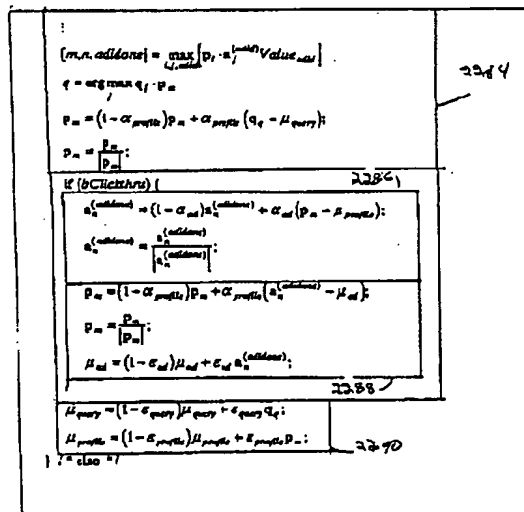 ⋮
[m,n,adidans] = max_{i,j,adid} [p_i · a_j^{(adid)} Value_{adid}]
q = arg max_j q_j · p_m
p_m = (1 − α_profile) p_m + α_profile (q_q − μ_query);
p_m = p_m / |p_m|;
2284
if (bClickthru) {
2286
a_n^{(adidans)} = (1 − α_ad) a_n^{(adidans)} + α_ad (p_m − μ_profile);
a_n^{(adidans)} = a_n^{(adidans)} / |a_n^{(adidans)}|;
p_m = (1 − α_profile) p_m + α_profile (a_n^{(adidans)} − μ_ad);
p_m = p_m / |p_m|;
μ_ad = (1 − ε_ad) μ_ad + ε_ad a_n^{(adidans)};
}
2288
μ_query = (1 − ε_query) μ_query + ε_query q_q;
μ_profile = (1 − ε_profile) μ_profile + ε_profile p_m;
2290
} /* else */